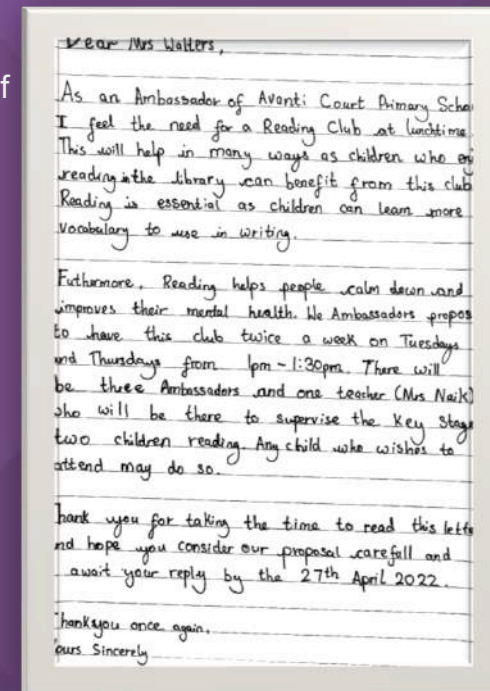 f
Dear Mrs Walters,
As an Ambassador of Avanti Court Primary Schoo
I feel the need for a Reading Club at lunchtime
This will help in many ways as children who enj
reading in the library can benefit from this club
Reading is essential as children can learn more
vocabulary to use in writing.
Futhermore, Reading helps people calm down and
improves their mental health. We Ambassadors propos
to have this club twice a week on Tuesdays
and Thursdays from 1pm - 1:30pm. There will
be three Ambassadors and one teacher (Mrs Naik)
who will be there to supervise the Key Stage
two children reading. Any child who wishes to
attend may do so.
hank you for taking the time to read this lette
nd hope you consider our proposal carefull and
await your reply by the 27th April 2022.
Thankyou once again,
ours Sincerely